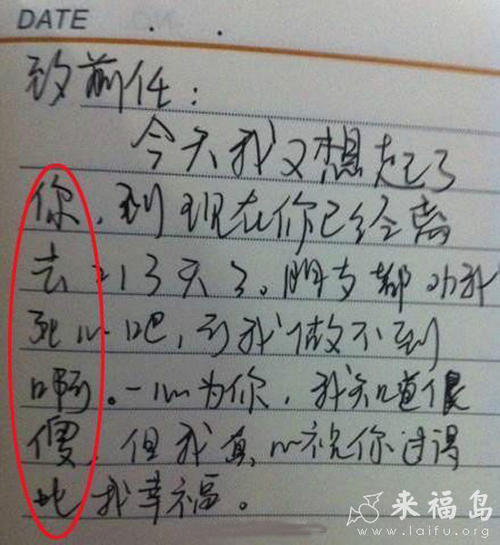 DATE . .
致前任：
今天我又想起了
你，到现在你已经离
去213天了。朋友都劝我
死心吧，可我做不到
啊。一心为你，我知道很
傻，但我真心祝你过得
比我幸福。
来福岛
www.laifu.org